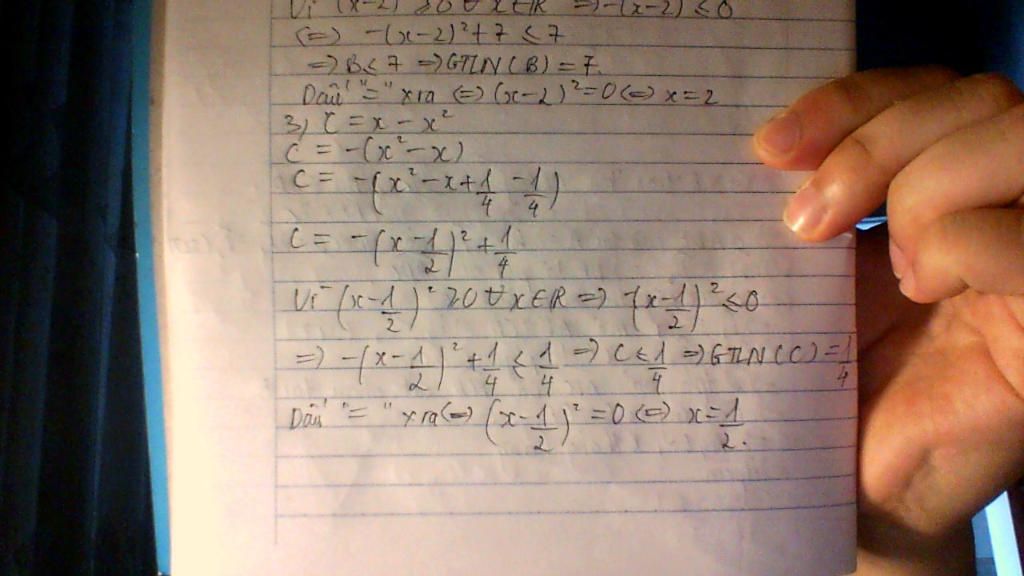 Vì (x-2)² ≥0 ∀ x ∈ R ⇒ -(x-2)² ≤ 0
(⇒) -(x-2)²+7 ≤ 7
⇒ B ≤ 7 ⇒ GTLN(B) = 7.
Dấu "=" xra (⇔) (x-2)²=0 (⇔) x=2
3) C = x - x²
C = -(x² - x)
C = -(x² - x + 1/4 - 1/4)
C = -(x - 1/2)² + 1/4
Vì (x - 1/2)² ≥ 0 ∀ x ∈ R ⇒ -(x - 1/2)² ≤ 0
⇒ -(x - 1/2)² + 1/4 ≤ 1/4 ⇒ C ≤ 1/4 ⇒ GTLN(C) = 1/4
Dấu "=" xra (⇔) (x - 1/2)² = 0 (⇔) x = 1/2.